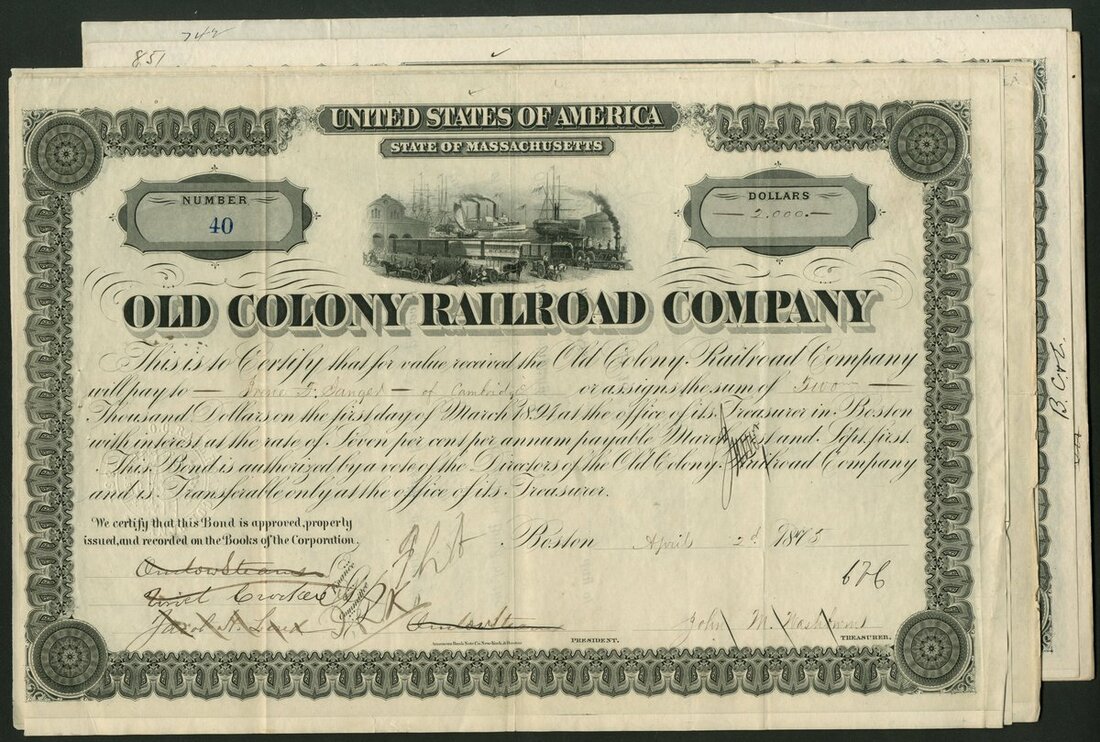 742
851
UNITED STATES OF AMERICA
STATE OF MASSACHUSETTS
NUMBER
40
DOLLARS
— 2,000. —
OLD COLONY RAILROAD COMPANY
This is to Certify that for value received the Old Colony Railroad Company
will pay to — F. Sanger — of Cambridge or assigns the sum of Two —
Thousand Dollars on the first day of March 1894 at the office of its Treasurer in Boston
with interest at the rate of Seven per cent per annum payable March first and Sept. first.
This Bond is authorized by a vote of the Directors of the Old Colony Railroad Company
and is Transferable only at the office of its Treasurer.
We certify that this Bond is approved, properly
issued, and recorded on the Books of the Corporation.
Boston April 2d 1875
Onslow Stearns
Uriel Crocker
Jacob H. Loud
Finance Committee
626
Onslow Stearns
PRESIDENT.
John M. Washburn
TREASURER.
American Bank Note Co. New York & Boston